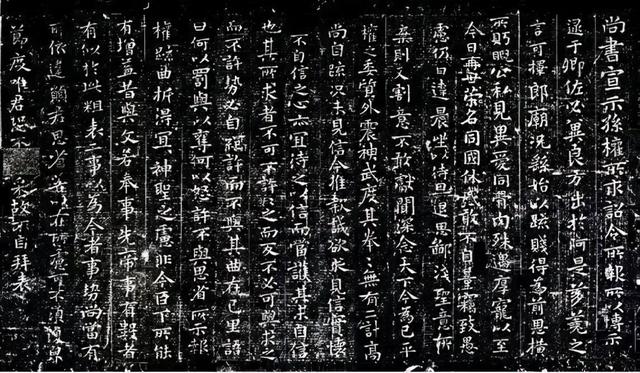 尚書宣示孫權所求詔令所報所以博示
逮于卿佐必冀良方出於阿是芻蕘之
言可擇郎廟況繇始以疏賤得為前恩橫
所盱睨公私見異愛同骨肉殊遇厚寵以至
今日再世榮名同國休慼敢不自量竊致愚
慮仍日達晨坐以待旦退思鄙淺聖意所
棄則又割意不敢獻聞深念天下今為已平
權之委質外震神武度其拳〻無有二計高
尚自疏況未見信今推款誠欲求見信實懷
不自信之心亦宜待之以信而當護其未自信
也其所求者不可不許許之而反不必可與求之
而不許勢必自絕許而不與其曲在己里語
曰何以罰與以奪何以怒許不與思省所示報
權疏曲折得宜宜神聖之慮非今臣下所能
有增益昔與文若奉事先帝事有數者
有似於此粗表二事以為今者事勢尚當有
所依違願君思省若以在所慮可不須復
節度唯君恐不采故不自拜表